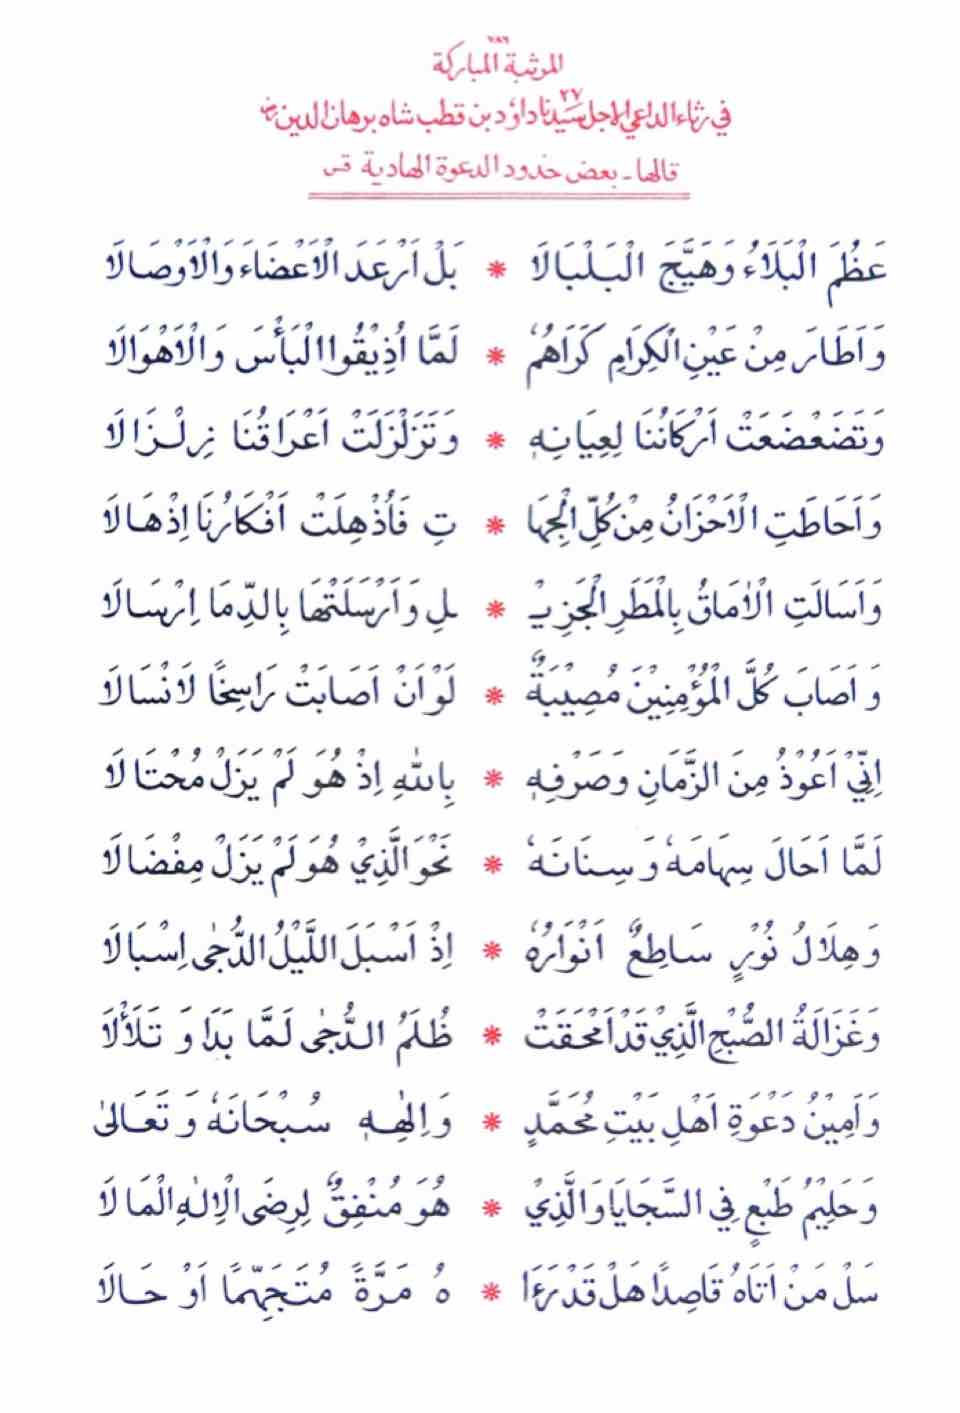 ٧٨٦
المرثية المباركة
في رثاء الداعي الاجل ٢٧ سيدنا داؤد بن قطب شاه برهان الدين رض
قالها ـ بعض حدود الدعوة الهادية قس
عَظُمَ الْبَلَاءُ وَهَيَّجَ الْبَلْبَالَا * بَلْ اَرْعَدَ الْاَعْضَاءَ وَالْاَوْصَالَا
وَاَطَارَ مِنْ عَيْنِ الْكِرَامِ كَرَاهُمُ * لَمَّا اُذِيْقُوا الْبَأْسَ وَالْاَهْوَالَا
وَتَضَعْضَعَتْ اَرْكَانُنَا لِعِيَانِهٖ * وَتَزَلْزَلَتْ اَعْرَاقُنَا زِلْزَالَا
وَاَحَاطَتِ الْاَحْزَانُ مِنْ كُلِّ الْجِهَا * تِ فَاُذْهِلَتْ اَفْكَارُنَا اِذْهَالَا
وَاَسَالَتِ الْاٰمَاقُ بِالْمَطَرِ الْجَزِيْـ * ـلِ وَاَرْسَلَتْهَا بِالدِّمَا اِرْسَالَا
وَاَصَابَ كُلَّ الْمُؤْمِنِيْنَ مُصِيْبَةٌ * لَوْ اَنْ اَصَابَتْ رَاسِخًا لَانْسَالَا
اِنِّيْ اَعُوْذُ مِنَ الزَّمَانِ وَصَرْفِهٖ * بِاللهِ اِذْ هُوَ لَمْ يَزَلْ مُحْتَالَا
لَمَّا اَحَالَ سِهَامَهٗ وَسِنَانَهٗ * نَحْوَ الَّذِيْ هُوَ لَمْ يَزَلْ مِفْضَالَا
وَهِلَالُ نُوْرٍ سَاطِعٌ اَنْوَارُهٗ * اِذْ اَسْبَلَ اللَّيْلُ الدُّجٰى اِسْبَالَا
وَغَزَالَةُ الصُّبْحِ الَّذِيْ قَدْ اَمْحَقَتْ * ظُلَمُ الدُّجٰى لَمَّا بَدَا وَ تَلَأْلَا
وَاَمِيْنُ دَعْوَةِ اَهْلِ بَيْتِ مُحَمَّدٍ * وَاِلٰهِهٖ سُبْحَانَهٗ وَتَعَالٰى
وَحَلِيْمُ طَبْعٍ فِي السَّجَايَا وَالَّذِيْ * هُوَ مُنْفِقٌ لِرِضَى الْاِلٰهِ الْمَالَا
سَلْ مَنْ اَتَاهُ قَاصِدًا هَلْ قَدْ رَءَا * هُ مَرَّةً مُتَجَهِّمًا اَوْ حَالَا